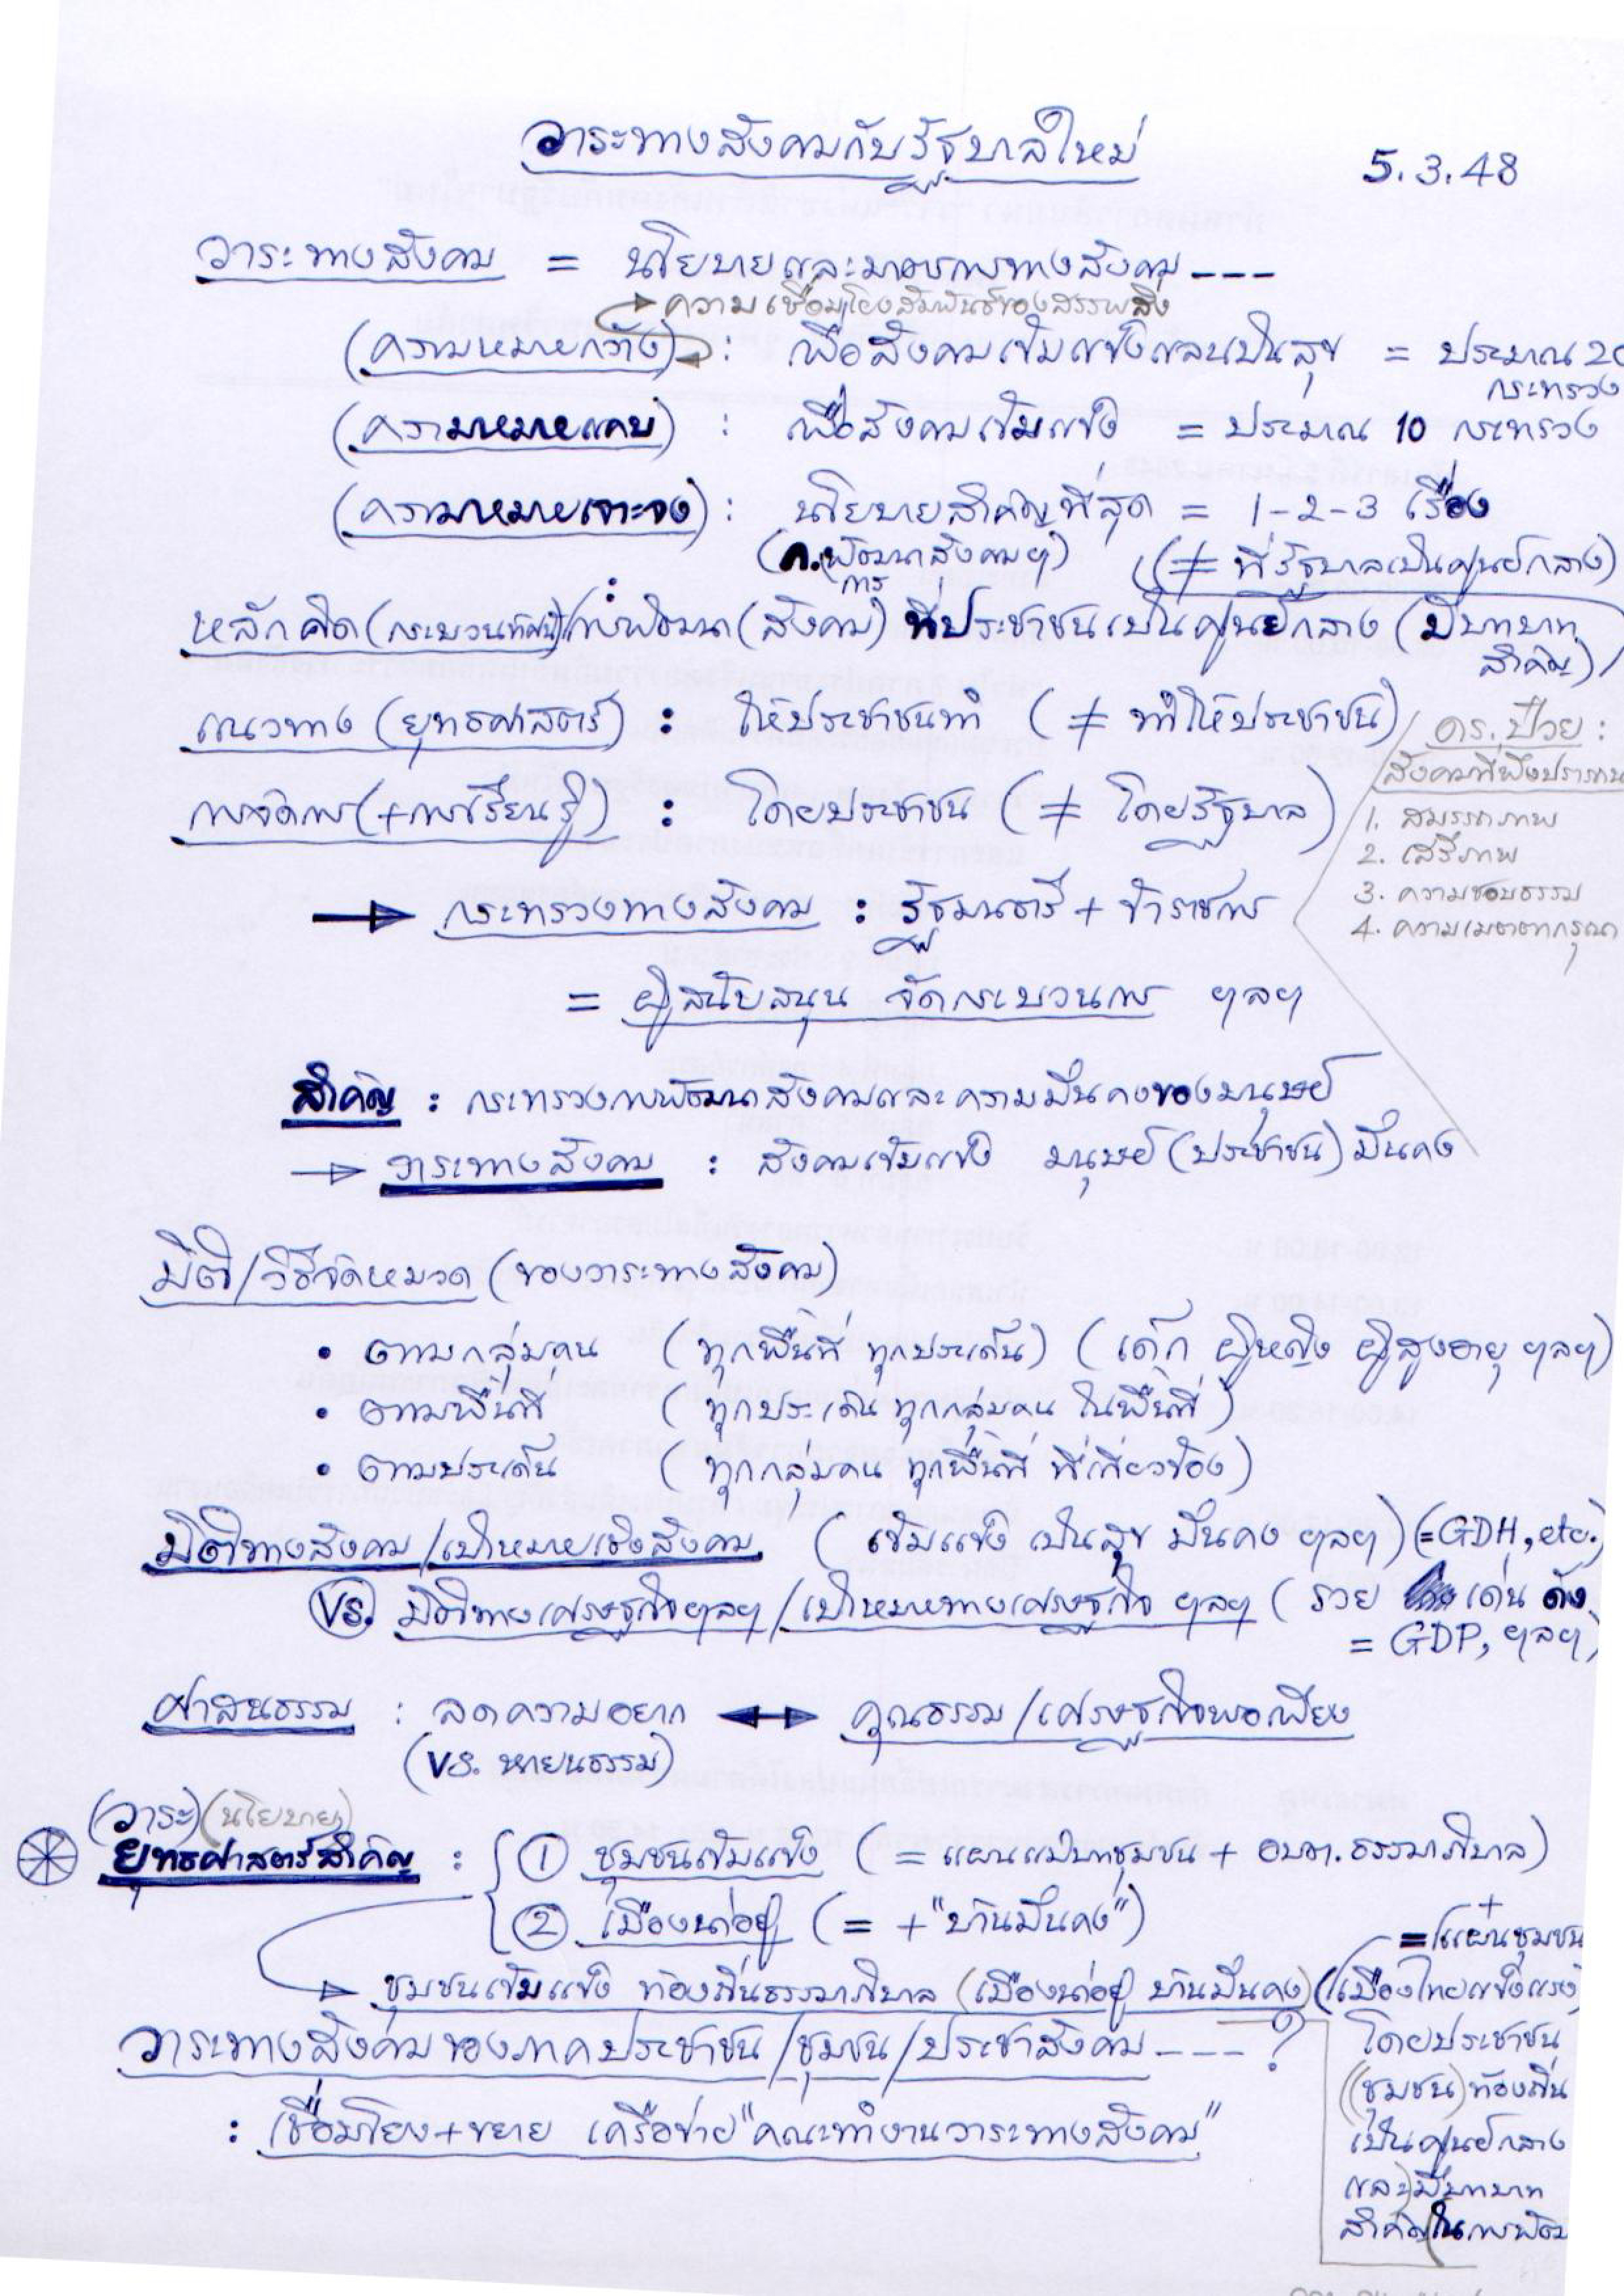 วาระทางสังคมกับรัฐบาลใหม่
5.3.48
วาระทางสังคม = นโยบายและมาตรการทางสังคม ---
ความเชื่อมโยงสัมพันธ์ของสรรพสิ่ง
(ความหมายกว้าง) : เพื่อสังคมเข้มแข็งและเป็นสุข = ประมาณ 20
กระทรวง
(ความหมายแคบ) : เพื่อสังคมเข้มแข็ง = ประมาณ 10 กระทรวง
(ความหมายเจาะจง) : นโยบายสำคัญที่สุด = 1-2-3 เรื่อง
(ก.พัฒนาสังคมฯ) (≠ ที่รัฐบาลเป็นศูนย์กลาง)
การ
หลักคิด (กระบวนทัศน์) : การพัฒนา (สังคม) ที่ประชาชนเป็นศูนย์กลาง (มีบทบาท
สำคัญ)
แนวทาง (ยุทธศาสตร์) : ให้ประชาชนทำ (≠ ทำให้ประชาชน)
ดร.ป๋วย :
สังคมที่พึงปรารถนา
การจัดการ (+การเรียนรู้) : โดยประชาชน (≠ โดยรัฐบาล)
1. สมรรถภาพ
2. เสรีภาพ
3. ความชอบธรรม
4. ความเมตตากรุณา
→ กระทรวงทางสังคม : รัฐมนตรี + ข้าราชการ
= ผู้สนับสนุน จัดกระบวนการ ฯลฯ
สำคัญ : กระทรวงการพัฒนาสังคมและความมั่นคงของมนุษย์
→ วาระทางสังคม : สังคมเข้มแข็ง มนุษย์ (ประชาชน) มั่นคง
มิติ/วิธีจัดหมวด (ของวาระทางสังคม)
• ตามกลุ่มคน (ทุกพื้นที่ ทุกประเด็น) (เด็ก ผู้หญิง ผู้สูงอายุ ฯลฯ)
• ตามพื้นที่ (ทุกประเด็น ทุกกลุ่มคน ในพื้นที่)
• ตามประเด็น (ทุกกลุ่มคน ทุกพื้นที่ ที่เกี่ยวข้อง)
มิติทางสังคม/เป้าหมายเชิงสังคม (เข้มแข็ง เป็นสุข มั่นคง ฯลฯ) (=GDH, etc.)
VS. มิติทางเศรษฐกิจฯลฯ/เป้าหมายทางเศรษฐกิจ ฯลฯ (รวย เด่น ดัง
= GDP, ฯลฯ)
ศาสนธรรม : ลดความอยาก ↔ คุณธรรม/เศรษฐกิจพอเพียง
(VS. หายนธรรม)
(วาระ) (นโยบาย)
ยุทธศาสตร์สำคัญ : ① ชุมชนเข้มแข็ง (= แผนแม่บทชุมชน + อบต.ธรรมาภิบาล)
② เมืองน่าอยู่ (= + "บ้านมั่นคง")
+
= แผนชุมชน
→ ชุมชนเข้มแข็ง ท้องถิ่นธรรมาภิบาล (เมืองน่าอยู่ บ้านมั่นคง) (เมืองไทยแข็งแรง)
วาระทางสังคมของภาคประชาชน/ชุมชน/ประชาสังคม ---- ?
: เชื่อมโยง+ขยาย เครือข่าย "คณะทำงานวาระทางสังคม"
โดยประชาชน
(ชุมชน) ท้องถิ่น
เป็นศูนย์กลาง
และมีบทบาท
สำคัญในการพัฒ